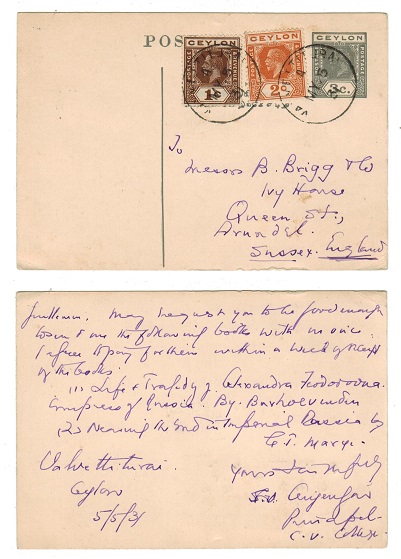 POS
CEYLON
POSTAGE
REVENUE
1c
CEYLON
2c.
CEYLON
POSTAGE
3c.
To
Messrs B. Brigg & Co
Ivy House
Queen St.,
Arundel.
Sussex. England
Gentlemen, May I request you to be good enough
to send me the following books with
I agree to pay for them within a week of receipt
of the books.
(1) Life & Tragedy of Alexandra Feodorovna.
Empress of Russia. By
(2) Nearing the End in Imperial Russia by
Valvettiturai.
Ceylon
5/5/31
Yours faithfully